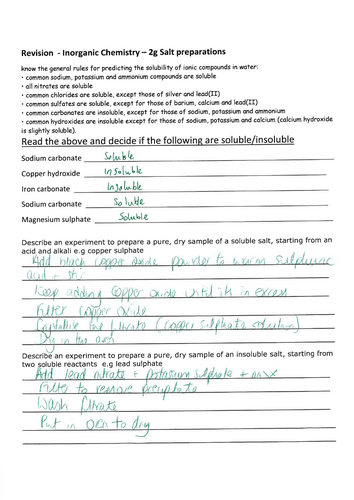 Revision - Inorganic Chemistry – 2g Salt preparations
know the general rules for predicting the solubility of ionic compounds in water:
• common sodium, potassium and ammonium compounds are soluble
• all nitrates are soluble
• common chlorides are soluble, except those of silver and lead(II)
• common sulfates are soluble, except for those of barium, calcium and lead(II)
• common carbonates are insoluble, except for those of sodium, potassium and ammonium
• common hydroxides are insoluble except for those of sodium, potassium and calcium (calcium hydroxide
is slightly soluble).
Read the above and decide if the following are soluble/insoluble
Sodium carbonate Soluble
Copper hydroxide insoluble
Iron carbonate Insoluble
Sodium carbonate Soluble
Magnesium sulphate Soluble
Describe an experiment to prepare a pure, dry sample of a soluble salt, starting from an
acid and alkali e.g copper sulphate
Add black copper oxide powder to warm sulphuric
acid + stir
Keep adding copper oxide until its in excess
Filter copper oxide
the filtrate (copper sulphate solution)
Dry in the oven
Describe an experiment to prepare a pure, dry sample of an insoluble salt, starting from
two soluble reactants e.g lead sulphate
Add lead nitrate + potassium sulphate + mix
Filter to remove precipitate
Wash filtrate
Put in oven to dry